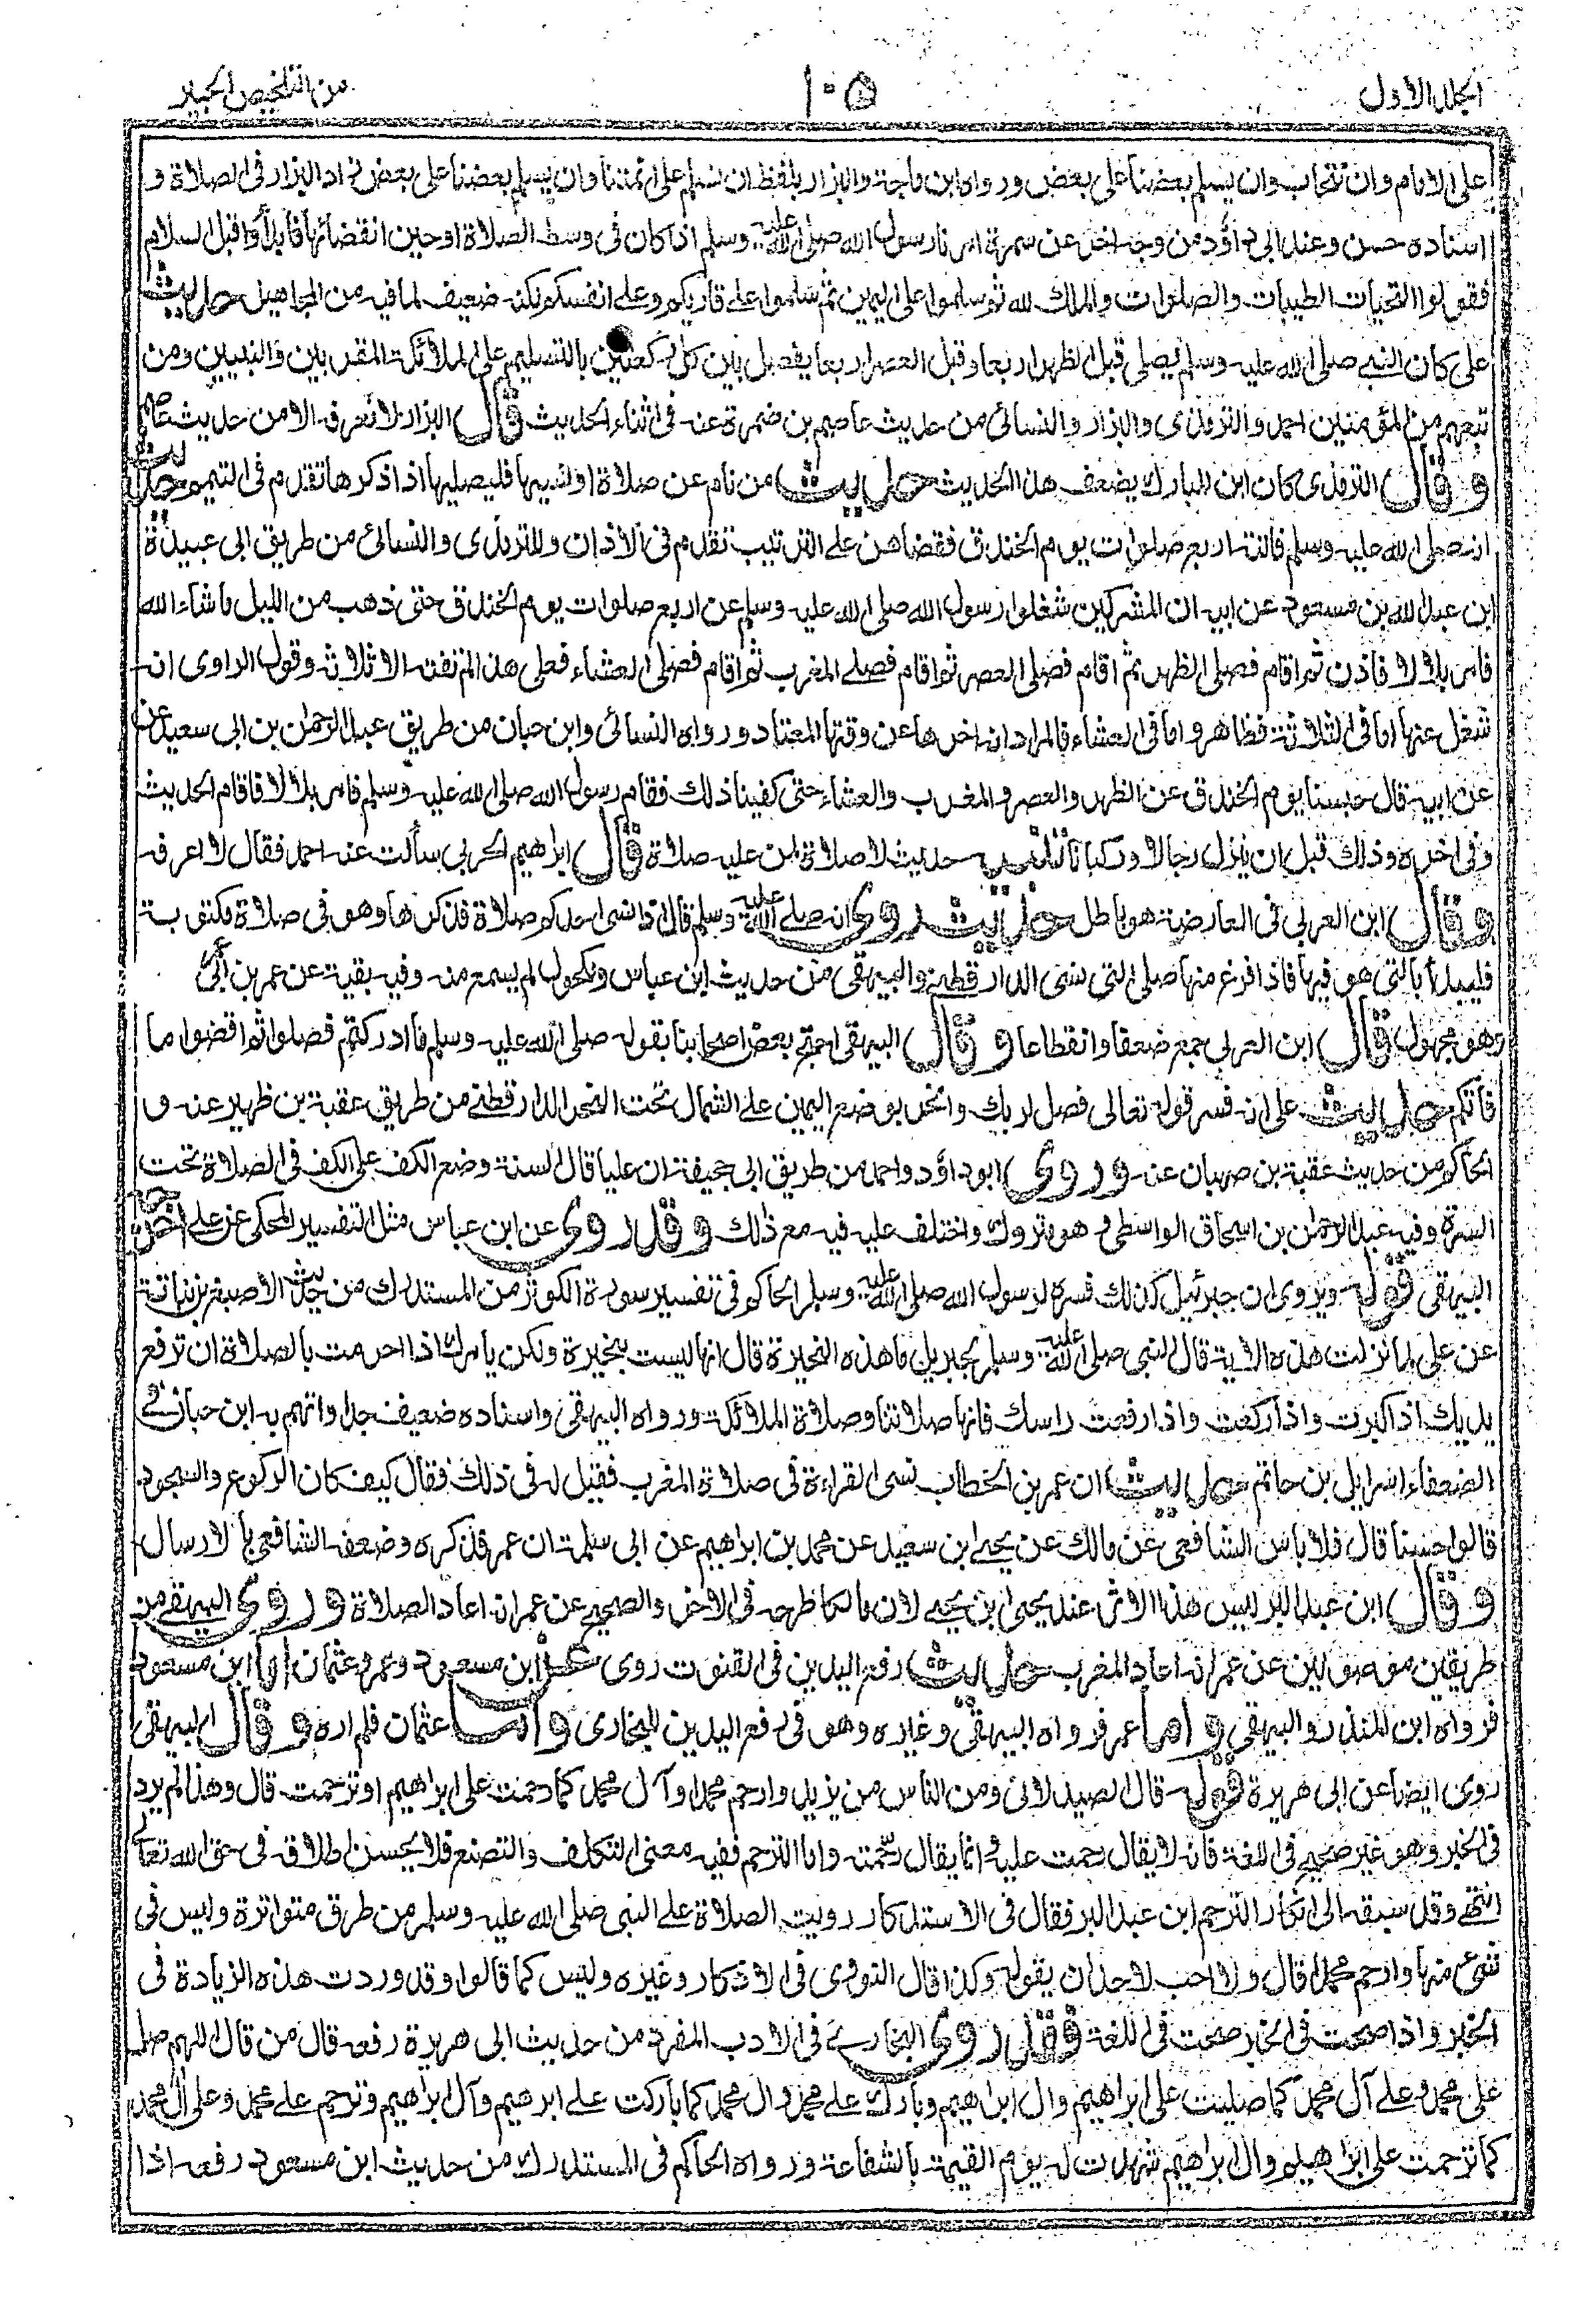 الجلد الاول
١٠٥
من التلخيص الحبير
على الامام وان نتحاب وان يسلم بعضنا على بعض ورواه ابن ماجة والبزار بلفظ ان نسلم على ائمتنا وان يسلم بعضنا على بعض زاد البزار فى الصلاة و
اسناده حسن وعند ابى داؤد من وجه اخر عن سمرة امرنا رسول الله صلى الله عليه وسلم اذا كان فى وسط الصلاة او حين انقضائها فابدأوا قبل السلام
فقولوا التحيات الطيبات والصلوات والملك لله ثم سلموا على اليمين ثم سلموا على قاريكم وعلى انفسكم لكنه ضعيف لما فيه من المجاهيل حديث
على كان النبي صلى الله عليه وسلم يصلى قبل الظهر اربعا وقبل العصر اربعا يفصل بين كل ركعتين بالتسليم على الملائكة المقربين والنبيين ومن
تبعهم من المؤمنين احمد والترمذى والبزار والنسائى من حديث عاصم بن ضمرة عنه فى اثناء الحديث قال البزار لا نعرفه الا من حديث عاصم
وقال الترمذى كان ابن المبارك يضعف هذا الحديث حديث من نام عن صلاة او نسيها فليصليها اذا ذكرها تقدم فى التيمم حديث
انه صلى الله عليه وسلم فاتته اربع صلوات يوم الخندق فقضاهن على الترتيب تقدم فى الاذان وللترمذى والنسائى من طريق ابى عبيدة
ابن عبد الله بن مسعود عن ابيه ان المشركين شغلوا رسول الله صلى الله عليه وسلم عن اربع صلوات يوم الخندق حتى ذهب من الليل ما شاء الله
فامر بلالا فاذن ثم اقام فصلى الظهر ثم اقام فصلى العصر ثم اقام فصلى المغرب ثم اقام فصلى العشاء فعلى هذا لم تفته الا ثلاث وقول الراوى انه
شغل عنها اما فى الثلاثة فظاهر واما فى العشاء فالمراد انه اخرها عن وقتها المعتاد ورواه النسائى وابن حبان من طريق عبد الرحمن بن ابى سعيد عن
عن ابيه قال حبسنا يوم الخندق عن الظهر والعصر والمغرب والعشاء حتى كفينا ذلك فقام رسول الله صلى الله عليه وسلم فامر بلالا فاقام الحديث
وفى اخره وذلك قبل ان ينزل رجالا وركبانا تنبيه حديث لا صلاة لمن عليه صلاة قال ابراهيم الحربى سألت عنه احمد فقال لا اعرفه
وقال ابن العربى فى العارضة هو باطل حديث روى انه صلى الله عليه وسلم قال اذا نسى احدكم صلاة فذكرها وهو فى صلاة مكتوبة
فليبدأ بالتى هو فيها فاذا فرغ منها صلى التى نسى الدارقطنى والبيهقى من حديث ابن عباس ومكحول لم يسمع منه وفيه بقية عن عمر بن ابى
وهو مجهول قال ابن العربى جمع ضعفا وانقطاعا وقال البيهقى احتج بعض اصحابنا بقوله صلى الله عليه وسلم ما ادركتم فصلوا ثم اقضوا ما
فاتكم حديث على انه فسر قوله تعالى فصل لربك وانحر بوضع اليمين على الشمال تحت النحر الدارقطنى من طريق عقبة بن ظهير عنه و
الحاكم من حديث عقبة بن صهبان عنه وروى ابو داؤد واحمد من طريق ابى جحيفة ان عليا قال السنة وضع الكف على الكف فى الصلاة تحت
السرة وفيه عبد الرحمن بن اسحاق الواسطى وهو متروك واختلف عليه فيه مع ذلك وقد روى عن ابن عباس مثل التفسير المحكى عن على اخرجه
البيهقى قوله ويروى ان جبرئيل كذلك فسره لرسول الله صلى الله عليه وسلم الحاكم فى تفسير سورة الكوثر من المستدرك من حديث الاصبغ بن نباتة
عن على لما نزلت هذه الاية قال النبى صلى الله عليه وسلم لجبريل ما هذه النحيرة قال انها ليست بنحيرة ولكن يامرك اذا احرمت بالصلاة ان ترفع
يديك اذا كبرت واذا ركعت واذا رفعت راسك فانها صلاتنا وصلاة الملائكة ورواه البيهقى واسناده ضعيف جدا واتهم به ابن حبان فى
الضعفاء اسرائيل بن حاتم حديث ان عمر بن الخطاب نسى القراءة فى صلاة المغرب فقيل له فى ذلك فقال كيف كان الركوع والسجود
قالوا حسنا قال فلا باس الشافعى عن مالك عن يحيى ابن سعيد عن محمد بن ابراهيم عن ابى سلمة ان عمر فذكره وضعفه الشافعى بالارسال
وقال ابن عبد البر ليس هذا الاثر عند يحيى ابن يحيى لان مالكا طرحه فى الاخر والصحيح عن عمر انه اعاد الصلاة وروى البيهقى من
طريقين موصولين عن عمر انه اعاد المغرب حديث رفع اليدين فى القنوت روى عن ابن مسعود وعمر وعثمان اما ابن مسعود
فرواه ابن المنذر والبيهقى واما عمر فرواه البيهقى وغيره وهو فى رفع اليدين للبخارى واما عثمان فلم اره وقال البيهقى
روى ايضا عن ابى هريرة قوله قال الصيدلانى ومن الناس من يزيد وارحم محمدا وآل محمد كما رحمت على ابراهيم او ترحمت قال وهذا لم يرد
فى الخبر وهو غير صحيح فى اللغة فانه لا يقال رحمت عليه وانما يقال رحمته واما الترحم ففيه معنى التكلف والتصنع فلا يحسن اطلاقه فى حق الله تعالى
انتهى وقد سبقه الى انكار الترحم ابن عبد البر فقال فى الاستذكار رويت الصلاة على النبى صلى الله عليه وسلم من طرق متواترة وليس فى
شئ منها وارحم محمدا قال ولا احب لاحد ان يقوله وكذا قال النووى فى الاذكار وغيره وليس كما قالوا وقد وردت هذه الزيادة فى
الخبر واذا صحت فى الخبر صحت فى اللغة فقد روى البخارى فى الادب المفرد من حديث ابى هريرة رفعه قال من قال اللهم صل
على محمد وعلى آل محمد كما صليت على ابراهيم وال ابراهيم وبارك على محمد وال محمد كما باركت على ابرهيم وآل ابراهيم وترحم على محمد وعلى آل محمد
كما ترحمت على ابراهيم وال ابراهيم شهدت له يوم القيمة بالشفاعة ورواه الحاكم فى المستدرك من حديث ابن مسعود رفعه اذا